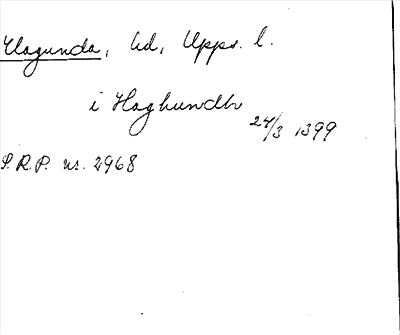 Hagunda, hd, Upps. l.
i Haghundh
24/3 1399
S.R.P. nr. 2968